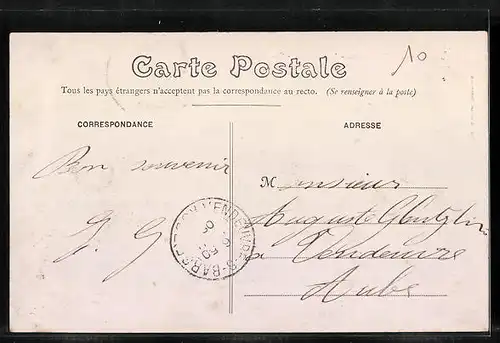 10
Carte Postale
Tous les pays étrangers n'acceptent pas la correspondance au recto. (Se renseigner à la poste)
CORRESPONDANCE
ADRESSE
Bon souvenir
G. G
Monsieur
Auguste
a Vendeuvre
Aube
VENDEUVRE-S-BARSE